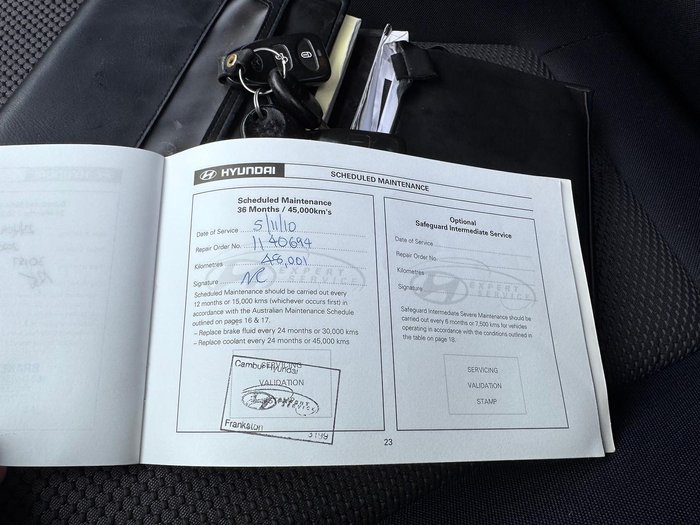 HYUNDAI
SCHEDULED MAINTENANCE
Scheduled Maintenance
36 Months / 45,000km's
Date of Service 5/11/10
Repair Order No. 1140694
Kilometres 48,001
Signature
EXPERT
SERVICE
Scheduled Maintenance should be carried out every
12 months or 15,000 kms (whichever occurs first) in
accordance with the Australian Maintenance Schedule
outlined on pages 16 & 17.
– Replace brake fluid every 24 months or 30,000 kms
– Replace coolant every 24 months or 45,000 kms
SERVICING
VALIDATION
Hyundai
EXPERT
SERVICE
Frankston
3199
Optional
Safeguard Intermediate Service
Date of Service
Repair Order No.
Kilometres
Signature
EXPERT
SERVICE
Safeguard Intermediate Severe Maintenance should be
carried out every 6 months or 7,500 kms for vehicles
operating in accordance with the conditions outlined in
the table on page 18.
SERVICING
VALIDATION
STAMP
23